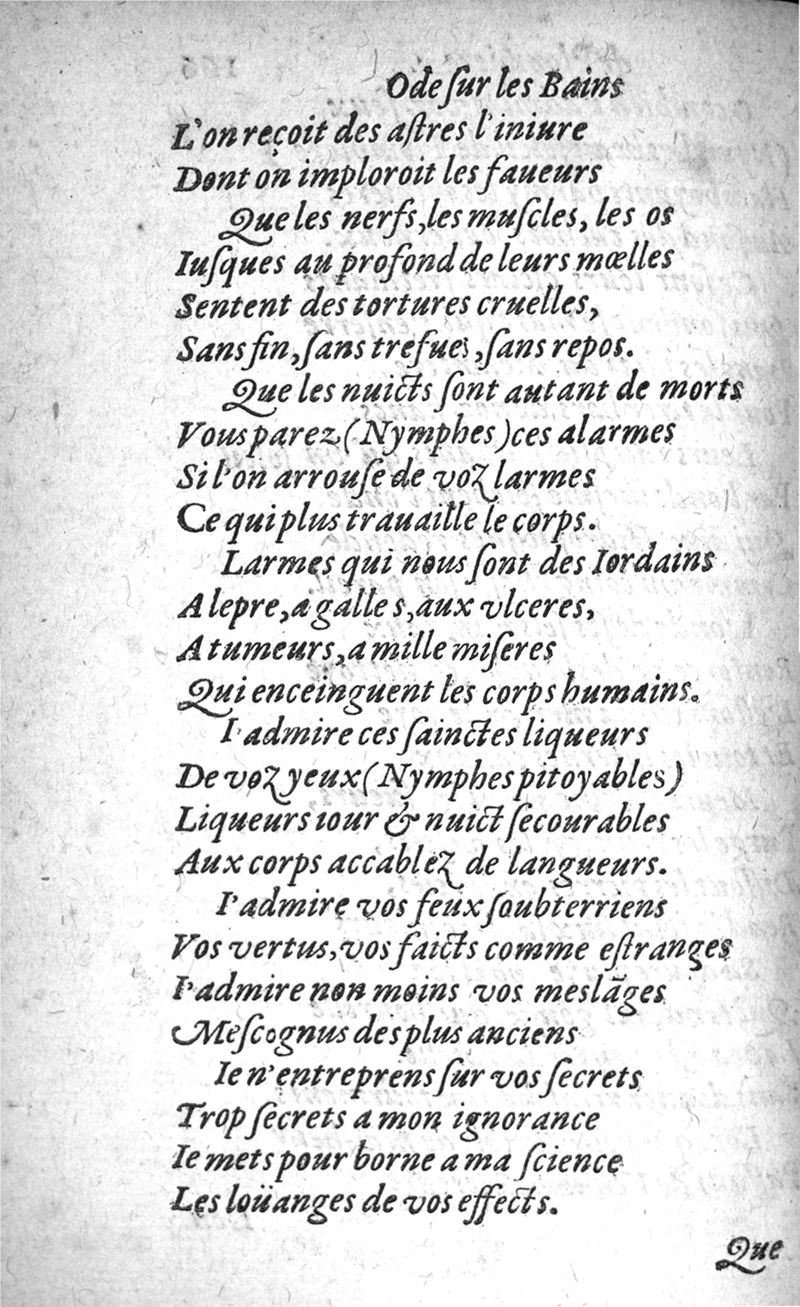 Ode ſur les Bains
L'on reçoit des aſtres l'iniure
Dont on imploroit les faueurs
Que les nerfs, les muſcles, les os
Iuſques au profond de leurs mœlles
Sentent des tortures cruelles,
Sans fin, ſans trefues, ſans repos.
Que les nuicts ſont autant de morts
Vous parez (Nymphes) ces alarmes
Si l'on arrouſe de voz larmes
Ce qui plus trauaille le corps.
Larmes qui nous ſont des Iordains
A lepre, a galles, aux vlceres,
A tumeurs, a mille miſeres
Qui enceinguent les corps humains.
I'admire ces ſainctes liqueurs
De voz yeux (Nymphes pitoyables)
Liqueurs iour & nuict ſecourables
Aux corps accablez de langueurs.
I'admire vos feux ſoubterriens
Vos vertus, vos faicts comme eſtranges
I'admire non moins vos meslãges
Meſcognus des plus anciens
Ie n'entreprens ſur vos ſecrets
Trop ſecrets a mon ignorance
Ie mets pour borne a ma ſcience
Les loüanges de vos effects.
Que